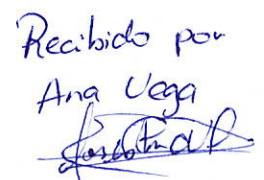 Recibido por
Ana Vega